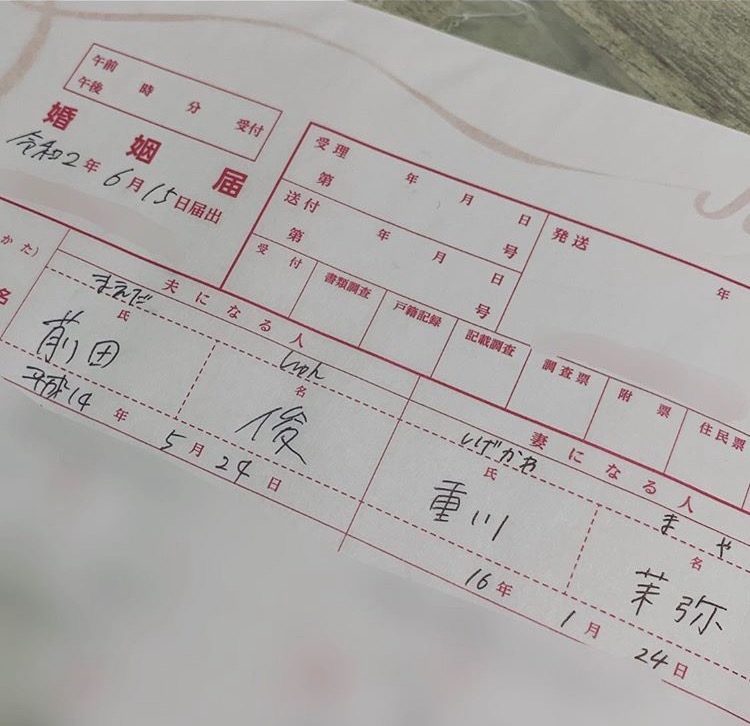 午前 時 分 受付
午後
婚姻届
令和2年6月15日届出
受理 年 月 日
第 号
送付 年 月 日
第 号
発送 年
受付 書類調査 戸籍記録 記載調査 調査票 附票 住民票
かた)
名
夫になる人
まえだ しゅん
氏 名
前田 俊
平成14年5月24日
妻になる人
しげかわ まや
氏 名
重川 茉弥
16年1月24日